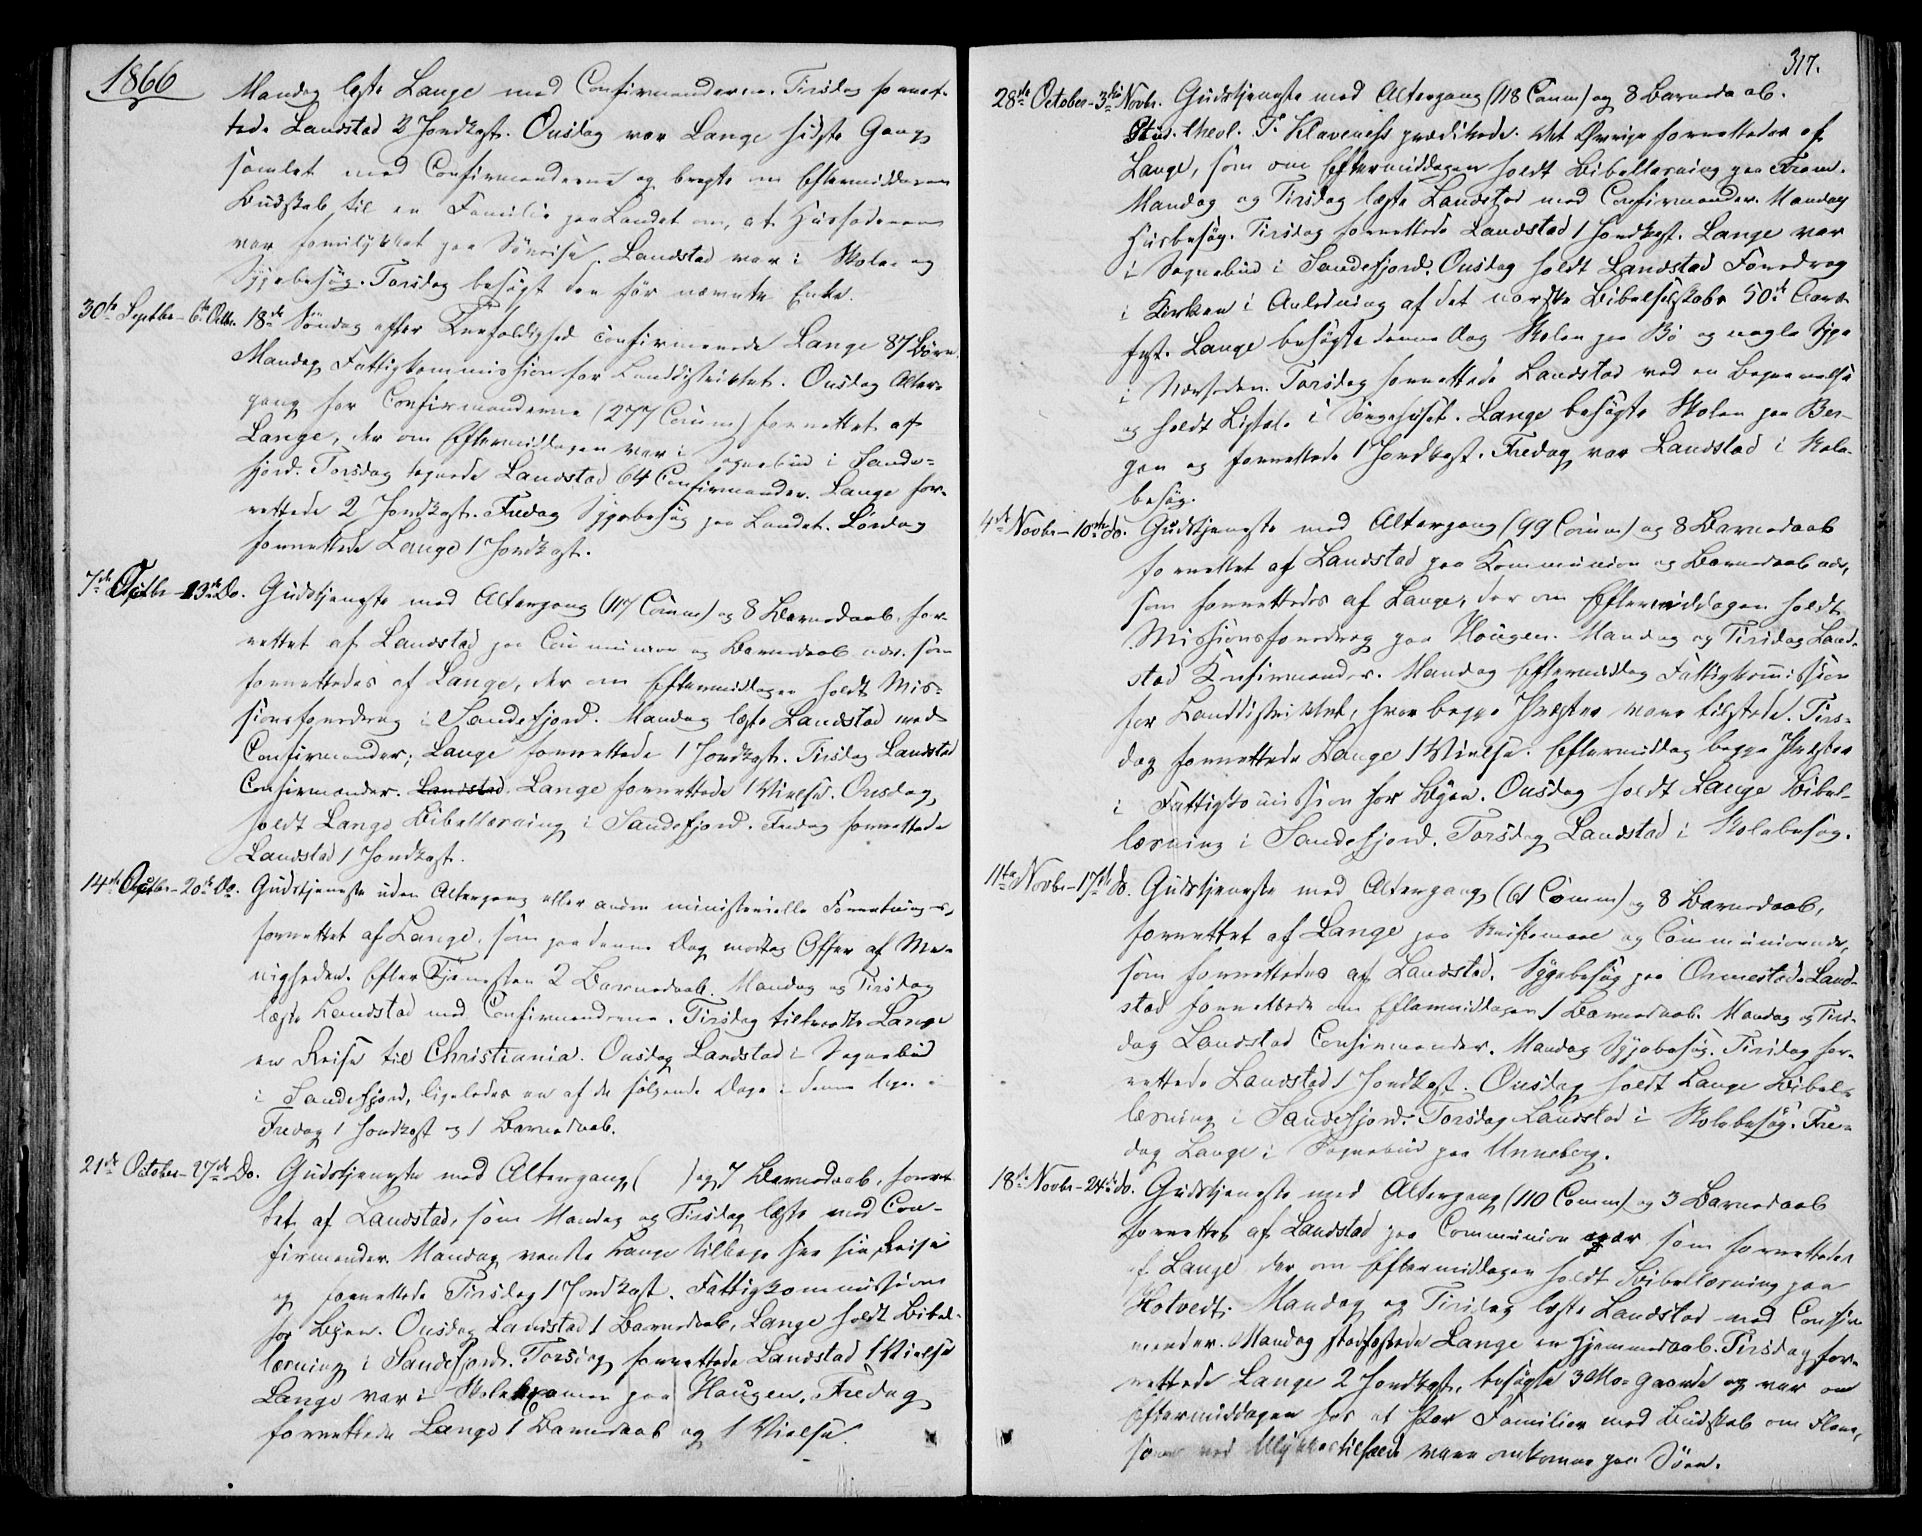 1866
Mandag læste Lange med Confirmanderne. Tirsdag forret-
tede Landstad 2 Jordkast. Onsdag var Lange sidste Gang
samlet med Confirmanderne og bragte om Eftermiddagen
Budskab til en Familie paa Landet om, at Husfaderen
var forulykket paa Söreise. Landstad var i Skole- og
Sygebesög. Torsdag besögt den för nævnte Enke.
30te Septbr-6te Octbr. 18de Söndag efter Trefoldighed confirmerede Lange 87 Börn.
Mandag Fattigkommission for Landdistriktet. Onsdag Alter-
gang for Confirmanderne (277 Comm) forrettet af
Lange, der om Eftermiddagen var i Sognebud i Sande-
fjord. Torsdag tegnede Landstad 64 Confirmander. Lange for-
rettede 2 Jordkast. Fredag Sygebesög paa Landet. Lördag
forrettede Lange 1 Jordkast.
7de Octbr-13de Do. Gudstjeneste med Altergang (117 Comm) og 8 Barnedaab, for-
rettet af Landstad paa Communion og Barnedaab nær, som
forrettedes af Lange, der om Eftermiddagen holdt Mis-
sionsforedrag i Sandefjord. Mandag læste Landstad med
Confirmander; Lange forrettede 1 Jordkast. Tirsdag Landstad
Confirmander. Landstad. Lange forrettede 1 Vielse. Onsdag
holdt Lange Bibellæsning i Sandefjord. Fredag forrettede
Landstad 1 Jordkast.
14de Octbr-20de Do. Gudstjeneste uden Altergang eller andre ministerielle Forretninger,
forrettet af Lange, som paa denne Dag modtog Offer af Me-
nigheden. Efter Tjenesten 2 Barnedaab. Mandag og Tirsdag
læste Landstad med Confirmanderne. Tirsdag tiltraadte Lange
en Reise til Christiania. Onsdag Landstad i Sognebud
i Sandefjord, ligeledes en af de fölgende Dage i denne Uge.
Fredag 1 Jordkast og 1 Barnedaab.
21de October-27de Do. Gudstjeneste med Altergang ( ) og 7 Barnedaab, forret-
tet af Landstad, som Mandag og Tirsdag læste med Con-
firmander. Mandag vendte Lange tilbage fra sin Reise
og forrettede Tirsdag 1 Jordkast. Fattigkommission
for Byen. Onsdag Landstad 1 Barnedaab, Lange holdt Bibel-
læsning i Sandefjord. Torsdag forrettede Landstad 1 Vielse
Lange var i Skoleexamen paa Haugen. Fredag
forrettede Lange 1 Barnedaab og 1 Vielse.
317.
28de October-3die Novbr. Gudstjeneste med Altergang (118 Comm) og 8 Barnedaab.
Stud. theol. T. Klaveness prædikede. Det Övrige forrettedes af
Lange, som om Eftermiddagen holdt Bibellæsning paa Fram.
Mandag og Tirsdag læste Landstad med Confirmander. Mandag
Husbesög. Tirsdag forrettede Landstad 1 Jordkast. Lange var
i Sognebud i Sandefjord. Onsdag holdt Landstad Foredrag
i Kirken i Anledning af det norske Bibelselskabs 50de Aars-
fest. Lange besögte denne Dag Skolen paa Bö og nogle Syge
i Nærheden. Torsdag forrettede Landstad ved en Begravelse
og holdt Ligtale i Sörgehuset. Lange besögte Skolen paa Ber-
gan og forrettede 1 Jordkast. Fredag var Landstad i Skole-
besög.
4de Novbr-10de do. Gudstjeneste med Altergang (99 Comm) og 8 Barnedaab
forrettet af Landstad paa Kommunion og Barnedaab nær,
som forrettedes af Lange, der om Eftermiddagen holdt
Missionsforedrag paa Haugen. Mandag og Tirsdag Land-
stad Konfirmander. Mandag Eftermiddag Fattigkomission
for Landdistriktet, hvor begge Præster vare tilstede. Tirs-
dag forrettede Lange 1 Vielse. Eftermiddag begge Præster
i Fattigkomission for Byen. Onsdag holdt Lange Bibel-
læsning i Sandefjord. Torsdag Landstad i Skolebesög.
11te Novbr-17de do. Gudstjeneste med Altergang (61 Comm) og 8 Barnedaab,
forrettet af Lange paa Skriftemaal og Communion nær,
som forrettedes af Landstad. Sygebesög paa Ormestad. Land-
stad forrettede om Eftermiddagen 1 Barnedaab. Mandag og Tirs-
dag Landstad Confirmander. Mandag Sygebesög. Tirsdag for-
rettede Landstad 1 Jordkast. Onsdag holdt Lange Bibel-
læsning i Sandefjord. Torsdag Landstad i Skolebesög. Fre-
dag Lange i Sognebud paa Unneberg.
18de Novbr-24de do. Gudstjeneste med Altergang (110 Comm) og 3 Barnedaab
forrettet af Landstad paa Communion nær som forrettedes
af Lange der om Eftermiddagen holdt Bibellæsning paa
Hotvedt. Mandag og Tirsdag læste Landstad med Confir-
mander. Mandag stadfæstede Lange en Hjemmedaab. Tirsdag for-
rettede Lange 2 Jordkast, besögte 3 Mo-Gaarde og var om
Eftermiddagen hos et Par Familier med Budskab om Flere,
som ved Ulykkestilfælde vare omkomne paa Söen.